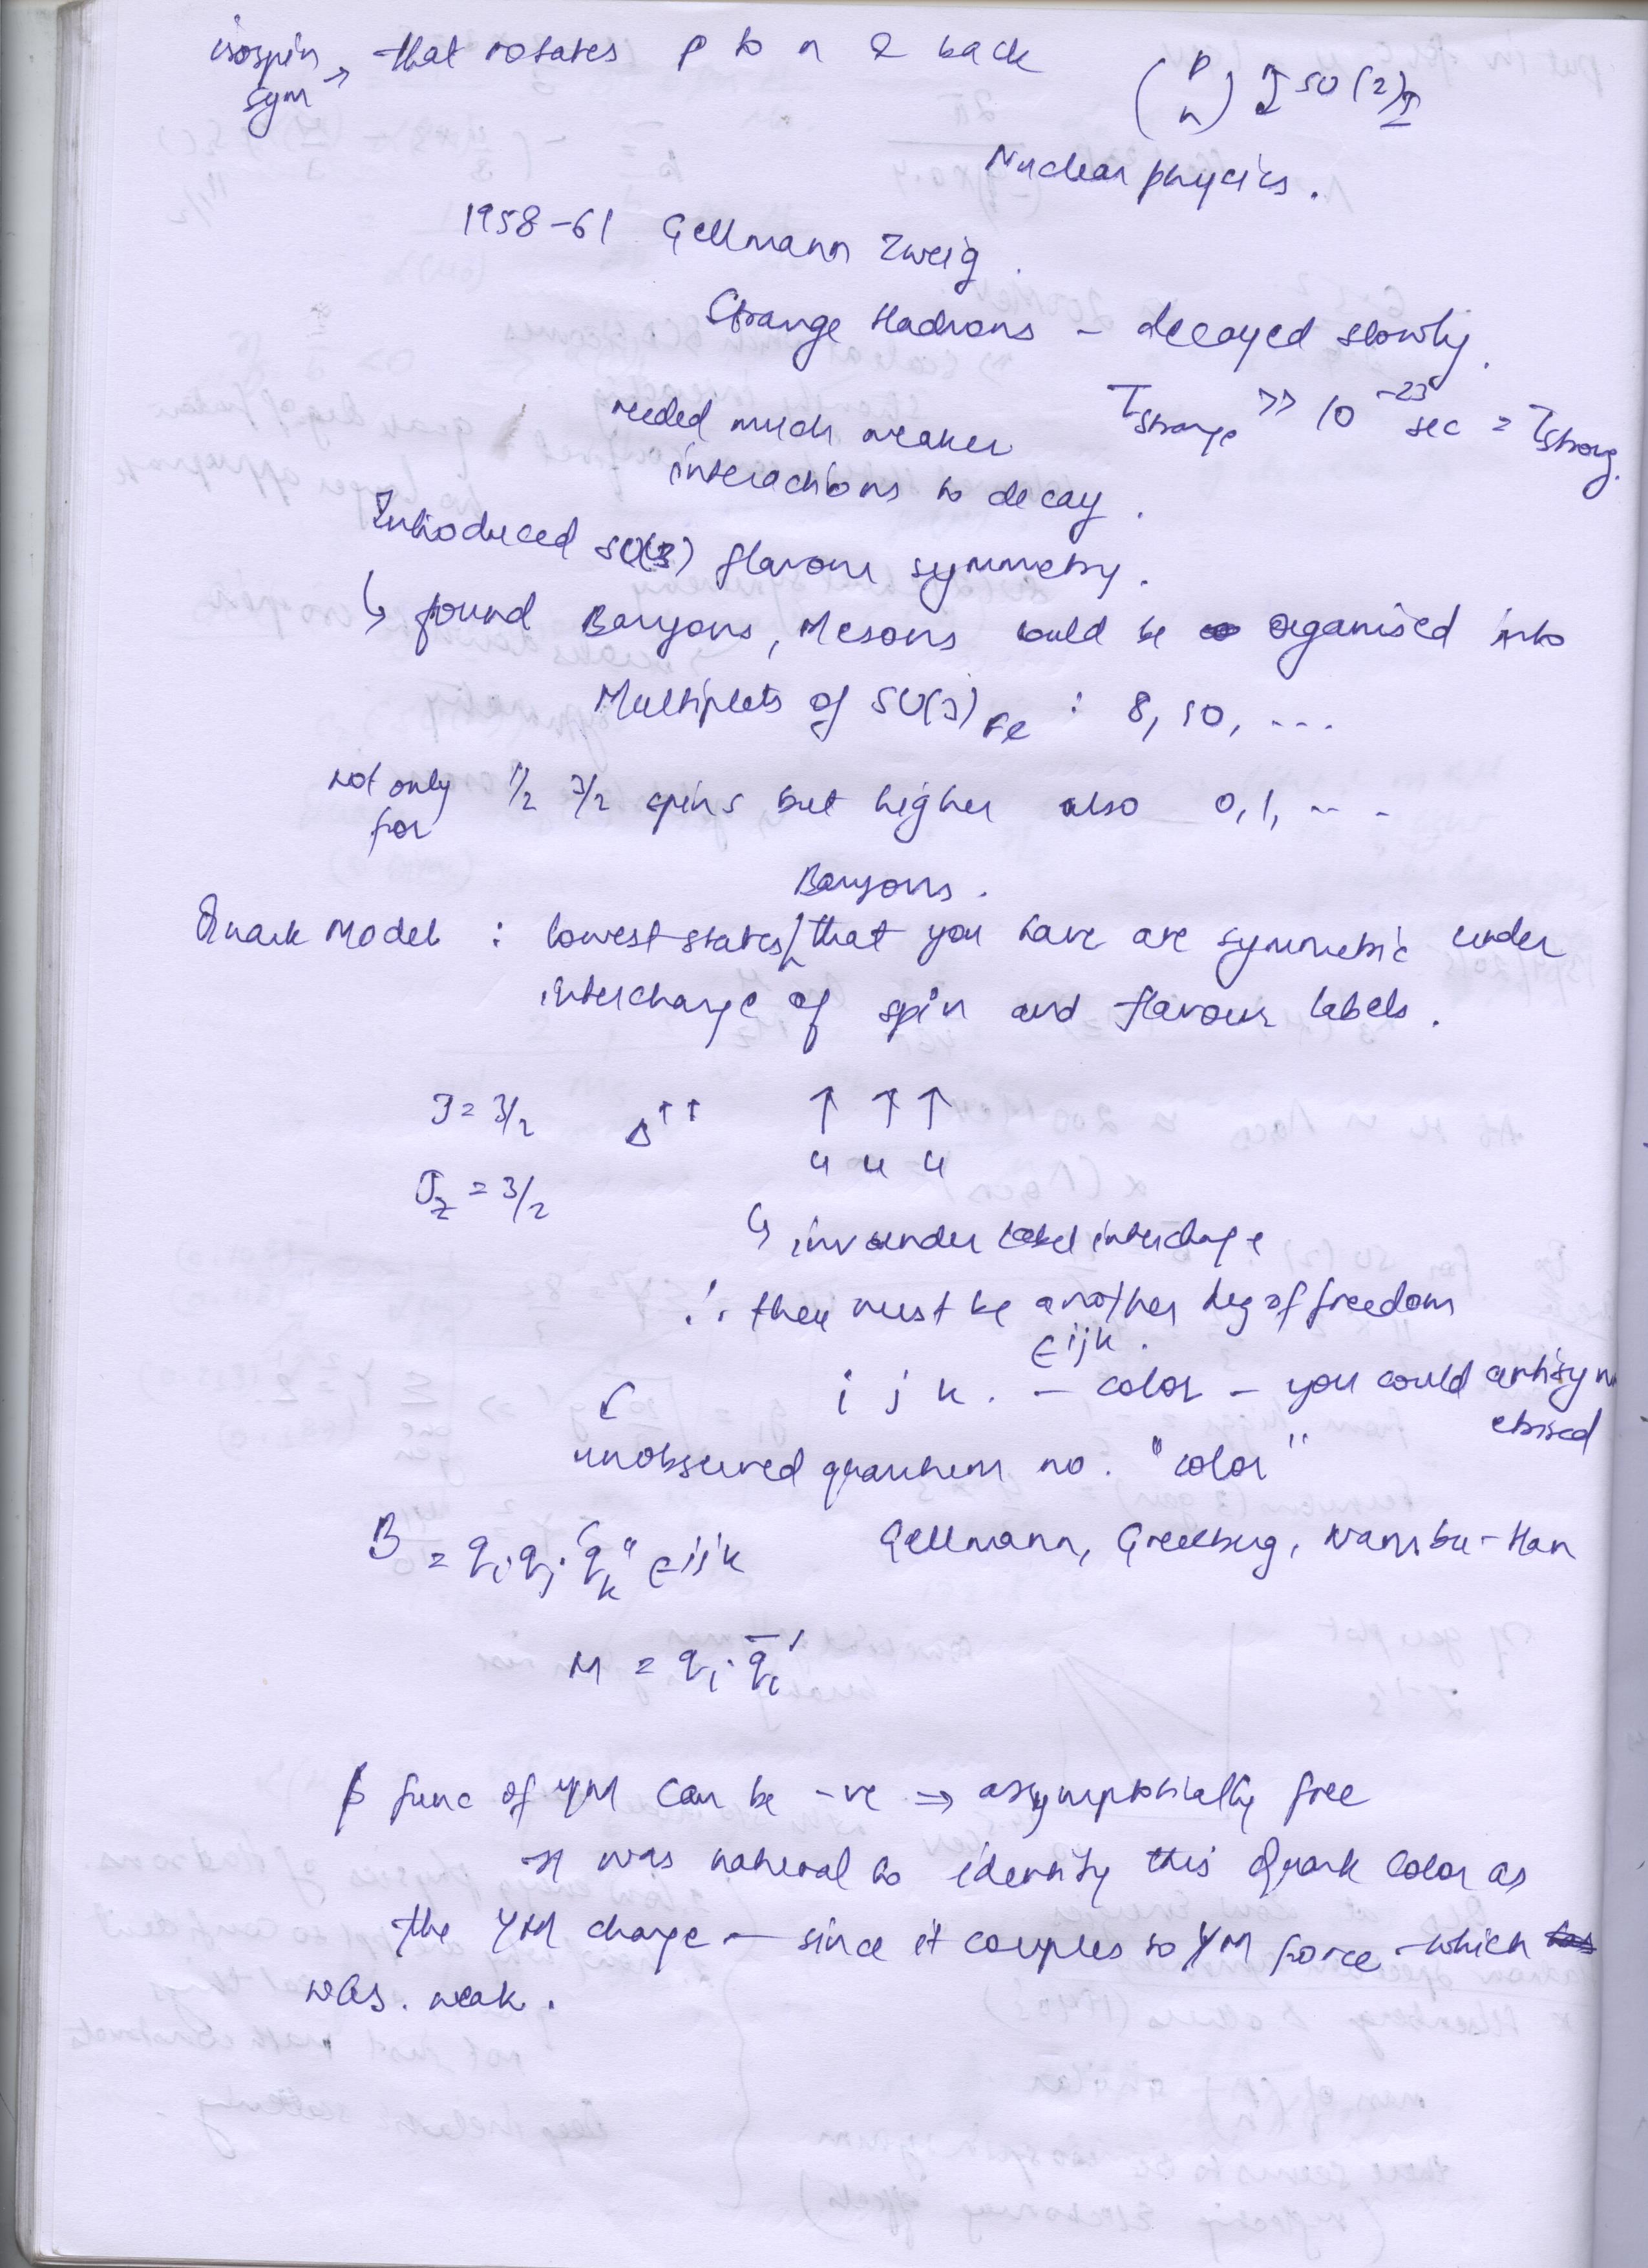 isospin sym → that rotates p to n & back
(p n) ↕ SU(2)_I
Nuclear physics.
1958-61 Gellmann Zweig.
Strange Hadrons - decayed slowly.
needed much weaker interactions to decay.
τ_strange >> 10^-23 sec = τ_strong.
Introduced SU(3) flavour symmetry.
↳ found Baryons, Mesons could be organised into
Multiplets of SU(3)_Fl : 8, 10, ...
not only for 1/2 3/2 spins but higher also 0, 1, - -
Baryons.
Quark Model : lowest states that you have are symmetric under
interchange of spin and flavour labels.
J = 3/2 Δ^++ ↑ ↑ ↑
J_z = 3/2 u u u
↳ inv under label interchange
∴ there must be another deg of freedom
ϵ^ijk.
i j k. - color - you could antisymmetrised
unobserved quantum no. "color"
B = q_i q_j' q_k'' ϵ^ijk Gellmann, Greenberg, Nambu-Han
M = q_i q̄_i'
β func of YM can be -ve ⇒ asymptotically free
It was natural to identify this Quark Color as
the YM charge - since it couples to YM force which has
was. weak.